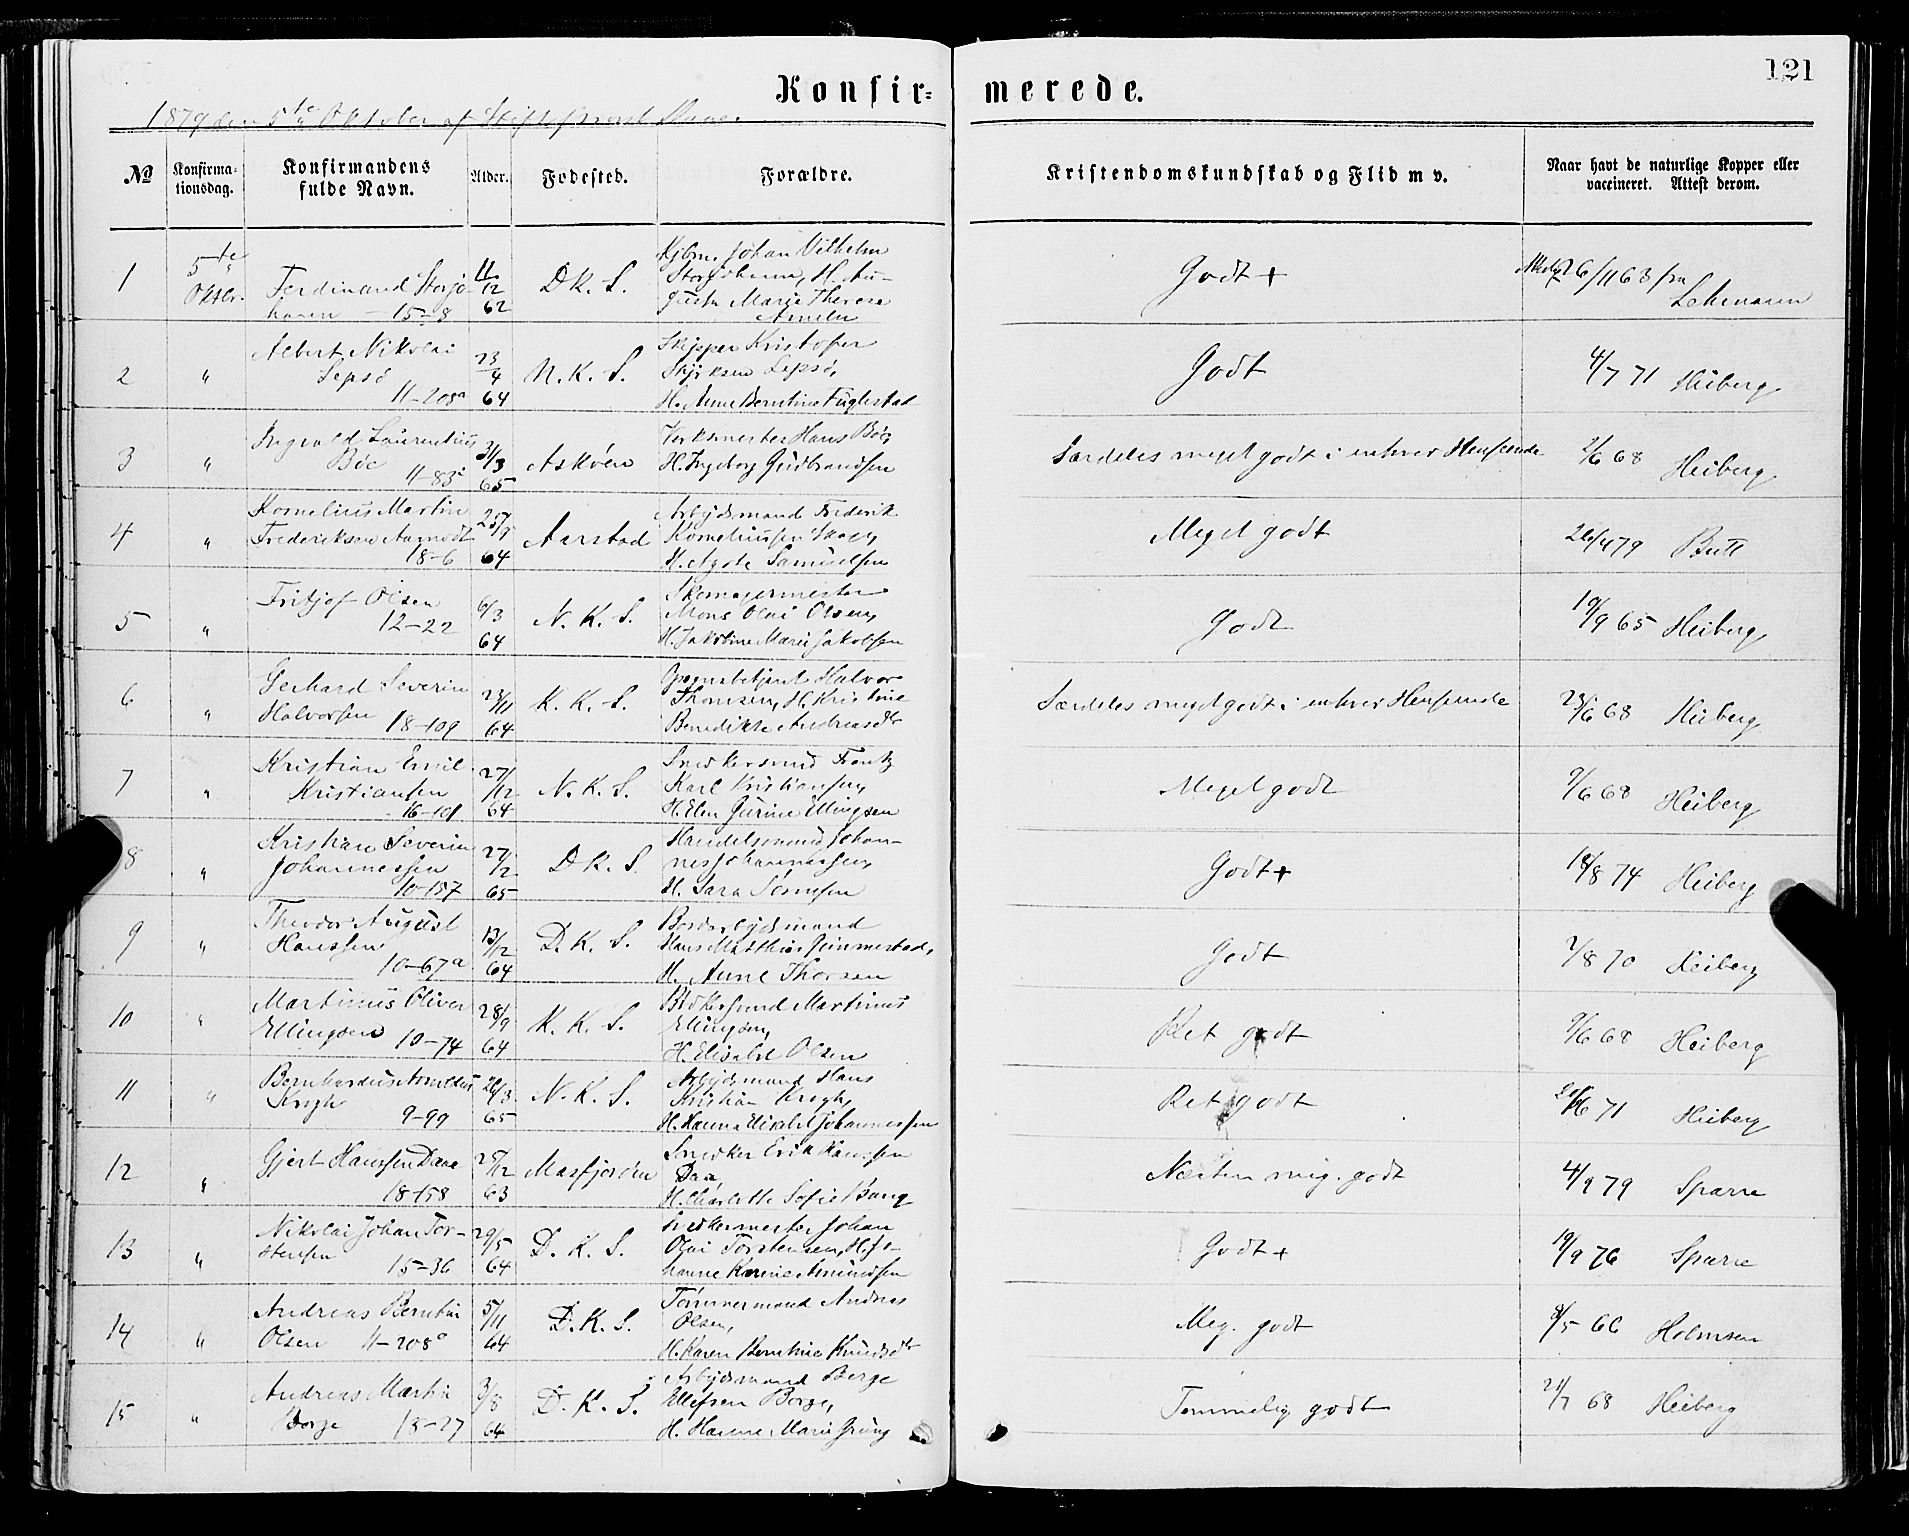 121
Konfir= merede.
1879 den 5te Oktober af Stiftsprovst
№ Konfirma-tionsdag. Konfirmandens fulde Navn. Alder. Fødested. Forældre. Kristendomskundskab og Flid m v. Naar havt de naturlige Kopper eller vaccineret. Attest derom.
1 5te Oktbr. Ferdinand Storjo-
hann 15-8 11/12 62 D K. S. Kjbm. Johan Vilhelm
Storjohann, H. Au-
gusta Marie Therese
Godt + 26/11 63 fra
Lehmann
2 " Albert Nikolai
Lepsø 11-208a 23/4 64 N. K. S. Skipper Kristofer
Lepsø,
H. Anne Berntine Fuglestad
Godt 4/7 71 Heiberg
3 " Ingvald Laurentius
Bøe 11-83 31/3 65 Askøen Værksmester Hans Bøe,
H. Ingeborg Gudbrandsen
Særdeles meget godt i enhver Henseende 2/6 68 Heiberg
4 " Kornelius Martin
Frederiksen Aamodt
18-6 64 Aarstad Arbejdsmand Frederik
Korneliussen
H. Agote Samuelsen
Meget godt 26/4 79 Bull
5 " Fritjof Olsen
12-22 6/3 64 N. K. S. Skomagermester
Mons Olai Olsen,
H. Jakobine Marie Jakobsen
Godt 19/9 65 Heiberg
6 " Gerhard Severin
Halvorsen 18-109 23/11 64 K. K. S. Halvor
Thomsen, H. Kristine
Benedikte Andreasdtr
Særdeles meget godt i enhver Henseende 23/6 68 Heiberg
7 " Kristian Emil
Kristiansen
16-101 27/12 64 N. K. S. Snedkersvend Frantz
Karl Kristiansen,
H. Elen Gurine Ellingsen
Meget godt 9/6 68 Heiberg
8 " Kristian Severin
Johannessen
10-157 27/2 65 D K. S. Handelsmand Johan-
nes Johannessen,
H. Sara
Godt + 18/8 74 Heiberg
9 " Theodor August
Hanssen
10-67a 13/12 64 D. K. S.
Hans Matthias Gimmestad,
H. Anne Thorsen
Godt 7/8 70 Heiberg
10 " Martinus Oliver
Ellingsen 10-74 28/9 64 K. K. S. Martinus
Ellingsen,
H. Elisabet Olsen
Ret godt 9/6 68 Heiberg
11 " Bernhardus Arneldus
Krogh
9-99 26/3 65 N. K. S. Arbejdsmand Hans
Kristian Krogh,
H. Hanna Elisabet Johannessen
Ret godt 20/6 71 Heiberg
12 " Gjert Hanssen Daae
18-158 25/12 63 Masfjorden Snedker Erik Hanssen
Daa,
H. Charlotte Sofie Bang
Næsten meg. godt 4/9 79 Sparre
13 " Nikolai Johan Tor-
stensen 15-36 29/5 64 D. K. S. Snedkermester Johan
Olai Torstensen, H. Jo-
hanne Karine Amundsen
Godt + 19/9 76 Sparre
14 " Andreas Berntin
Olsen 11-208a 5/11 64 D. K. S. Tømmermand Andreas
Olsen,
H. Karen Berntine Knudsdtr
Meg. godt 8/5 66 Holmsen
15 " Andreas Martin
Borge 18-27 3/8 64 D. K. S. Arbejdsmand Børge
Ellefsen Borge,
H. Hanne Marie Grung
Temmelig godt 21/7 68 Heiberg